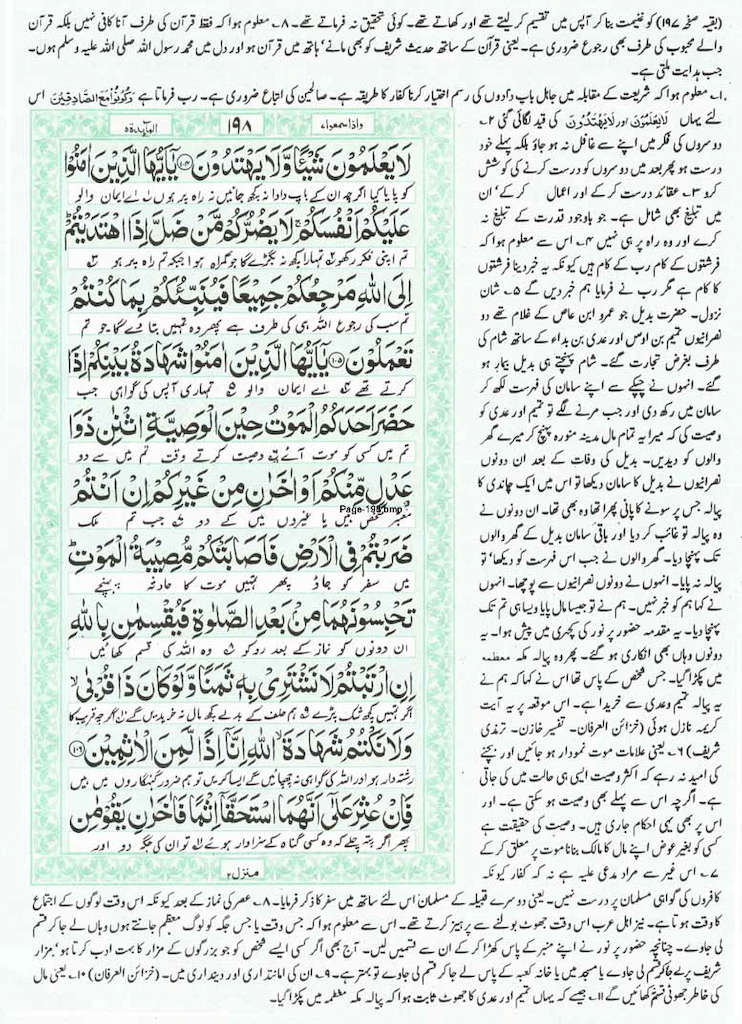 (بقیہ صفحہ ۱۹۷) کو غنیمت بنا کر آپس میں تقسیم کر لیتے تھے اور کھاتے تھے۔ کوئی تحقیق نہ فرماتے تھے۔ ۸۔ معلوم ہوا کہ فقط قرآن کی طرف آنا کافی نہیں بلکہ قرآن
والے محبوب کی طرف بھی رجوع ضروری ہے۔ یعنی قرآن کے ساتھ حدیث شریف کو بھی مانے' ہاتھ میں قرآن ہو اور دل میں محمد رسول اللہ صلی اللہ علیہ وسلم ہوں۔
جب ہدایت ملتی ہے۔
۱۔ معلوم ہوا کہ شریعت کے مقابلہ میں جاہل باپ دادوں کی رسم اختیار کرنا کفار کا طریقہ ہے۔ صالحین کی اتباع ضروری ہے۔ رب فرماتا ہے وَكُونُوا مَعَ الصَّادِقِينَ اس
لئے یہاں لَا يَعْلَمُونَ اور لَا يَهْتَدُونَ کی قید لگائی گئی ۲۔
دوسروں کی فکر میں اپنے سے غافل نہ ہو جاؤ بلکہ پہلے خود
درست ہو پھر بعد میں دوسروں کو درست کرنے کی کوشش
کرو ۳۔ عقائد درست کر کے اور اعمال کر کے' ان
میں تبلیغ بھی شامل ہے۔ جو باوجود قدرت کے تبلیغ نہ
کرے اور وہ راہ پر ہی نہیں ۴۔ اس سے معلوم ہوا کہ
فرشتوں کے کام رب کے کام ہیں کیونکہ یہ خبر دینا فرشتوں
کا کام ہے مگر رب نے فرمایا ہم خبر دیں گے ۵۔ شان
نزول۔ حضرت بدیل جو عمرو ابن عاص کے غلام تھے دو
نصرانیوں تمیم بن اوس اور عدی بن بداء کے ساتھ شام کی
طرف بغرض تجارت گئے۔ شام پہنچتے ہی بدیل بیمار ہو
گئے۔ انہوں نے چپکے سے اپنے سامان کی فہرست لکھ کر
سامان میں رکھ دی اور جب مرنے لگے تو تمیم اور عدی کو
وصیت کی کہ میرا یہ تمام مال مدینہ منورہ پہنچ کر میرے گھر
والوں کو دیدیں۔ بدیل کی وفات کے بعد ان دونوں
نصرانیوں نے بدیل کا سامان دیکھا تو اس میں ایک چاندی کا
پیالہ جس پر سونے کا پانی پھرا تھا وہ بھی تھا۔ ان دونوں نے
وہ پیالہ تو غائب کر دیا اور باقی سامان بدیل کے گھر والوں
تک پہنچا دیا۔ گھر والوں نے جب اس فہرست کو دیکھا' تو
پیالہ نہ پایا۔ انہوں نے دونوں نصرانیوں سے پوچھا۔ انہوں
نے کہا ہم کو خبر نہیں۔ ہم نے تو جیسا مال پایا ویسا ہی تم تک
پہنچا دیا۔ یہ مقدمہ حضور پر نور کی کچہری میں پیش ہوا۔ یہ
دونوں وہاں بھی انکاری ہو گئے۔ پھر وہ پیالہ مکہ معظمہ
میں پکڑا گیا۔ جس شخص کے پاس تھا اس نے کہا کہ ہم نے
یہ پیالہ تمیم وعدی سے خریدا ہے۔ اس موقعہ پر یہ آیت
کریمہ نازل ہوئی (خزائن العرفان۔ تفسیر خازن۔ ترمذی
شریف) ۶۔ یعنی علامات موت نمودار ہو جائیں اور بچنے
کی امید نہ رہے کہ اکثر وصیت ایسی ہی حالت میں کی جاتی
ہے۔ اگرچہ اس سے پہلے بھی وصیت ہو سکتی ہے۔ اور
اس پر بھی یہی احکام جاری ہیں۔ وصیت کی حقیقت ہے
کسی کو بغیر عوض اپنے مال کا مالک بنانا موت پر معلق کر کے
۷۔ اس غیر سے مراد مدعی علیہ ہے نہ کہ کفار کیونکہ
المآئدة ۵
۱۹۸
واذا سمعوا ۷
لَا يَعْلَمُونَ شَيْئًا وَّلَا يَهْتَدُونَ ۝۱۰۴ يٰۤاَيُّهَا الَّذِيْنَ اٰمَنُوْا
کو یا یا کیا اگرچہ ان کے باپ دادا نہ کچھ جانیں نہ راہ پر ہوں ۱ اے ایمان والو
عَلَيْكُمْ اَنْفُسَكُمْ ۚ لَا يَضُرُّكُمْ مَّنْ ضَلَّ اِذَا اهْتَدَيْتُمْ ؕ
تم اپنی فکر رکھو ۲ تمہارا کچھ نہ بگڑے گا جو گمراہ ہوا جبکہ تم راہ پر ہو ۳
اِلَى اللّٰهِ مَرْجِعُكُمْ جَمِيْعًا فَيُنَبِّئُكُمْ بِمَا كُنْتُمْ
تم سب کی رجوع اللہ ہی کی طرف ہے پھر وہ تمہیں بتا دے گا جو تم
تَعْمَلُوْنَ ۝۱۰۵ يٰۤاَيُّهَا الَّذِيْنَ اٰمَنُوْا شَهَادَةُ بَيْنِكُمْ اِذَا
کرتے تھے ۴ اے ایمان والو ۵ تمہاری آپس کی گواہی جب
حَضَرَ اَحَدَكُمُ الْمَوْتُ حِيْنَ الْوَصِيَّةِ اثْنٰنِ ذَوَا
تم میں کسی کو موت آئے ۶ وصیت کرتے وقت تم میں سے دو
عَدْلٍ مِّنْكُمْ اَوْ اٰخَرٰنِ مِنْ غَيْرِكُمْ اِنْ اَنْتُمْ
معتبر شخص ہیں یا غیروں میں کے دو ۷ جب تم ملک
Page-198.bmp
ضَرَبْتُمْ فِى الْاَرْضِ فَاَصَابَتْكُمْ مُّصِيْبَةُ الْمَوْتِ ؕ
میں سفر کو جاؤ پھر تمہیں موت کا حادثہ پہنچے
تَحْبِسُوْنَهُمَا مِنْۢ بَعْدِ الصَّلٰوةِ فَيُقْسِمٰنِ بِاللّٰهِ
ان دونوں کو نماز کے بعد روکو ۸ وہ اللہ کی قسم کھائیں
اِنِ ارْتَبْتُمْ لَا نَشْتَرِىْ بِهٖ ثَمَنًا وَّلَوْ كَانَ ذَا قُرْبٰى ۙ
اگر تمہیں کچھ شک پڑے ۹ ہم حلف کے بدلے کچھ مال نہ خریدیں گے اگرچہ قریب کا
وَلَا نَكْتُمُ شَهَادَةَ ۙ اللّٰهِ اِنَّاۤ اِذًا لَّمِنَ الْاٰثِمِيْنَ ۝۱۰۶
رشتہ دار ہو اور اللہ کی گواہی نہ چھپائیں گے ایسا کریں تو ہم ضرور گنہگاروں میں ہیں
فَاِنْ عُثِرَ عَلٰۤى اَنَّهُمَا اسْتَحَقَّاۤ اِثْمًا فَاٰخَرٰنِ يَقُوْمٰنِ
پھر اگر پتہ چلے کہ وہ کسی گناہ کے سزاوار ہوئے تو ان کی جگہ دو اور
منزل ۲
کافروں کی گواہی مسلمان پر درست نہیں۔ یعنی دوسرے قبیلہ کے مسلمان اس لئے ساتھ میں سفر کا ذکر فرمایا۔ ۸۔ عصر کی نماز کے بعد کیونکہ اس وقت لوگوں کے اجتماع
کا وقت ہوتا ہے۔ نیز اہل عرب اس وقت جھوٹ بولنے سے پرہیز کرتے تھے۔ اس سے معلوم ہوا کہ جس وقت یا جس جگہ کو لوگ معظم جانتے ہوں وہاں لے جا کر قسم
لی جاوے۔ چنانچہ حضور پر نور نے اپنے منبر کے پاس کھڑا کر کے ان سے قسمیں لیں۔ آج بھی اگر کسی ایسے شخص کو جو بزرگوں کے مزار کا بہت ادب کرتا ہو' مزار
شریف پر لے جا کر قسم لی جاوے یا مسجد میں یا خانہ کعبہ کے پاس لے جا کر قسم لی جاوے تو بہتر ہے۔ ۹۔ ان کی امانتداری اور دینداری میں۔ (خزائن العرفان) ۱۰۔ یعنی مال
کی خاطر جھوٹی قسم کھائیں گے ۱۱۔ جیسے کہ یہاں تمیم اور عدی کا جھوٹ ثابت ہوا کہ پیالہ مکہ معظمہ میں پکڑا گیا۔